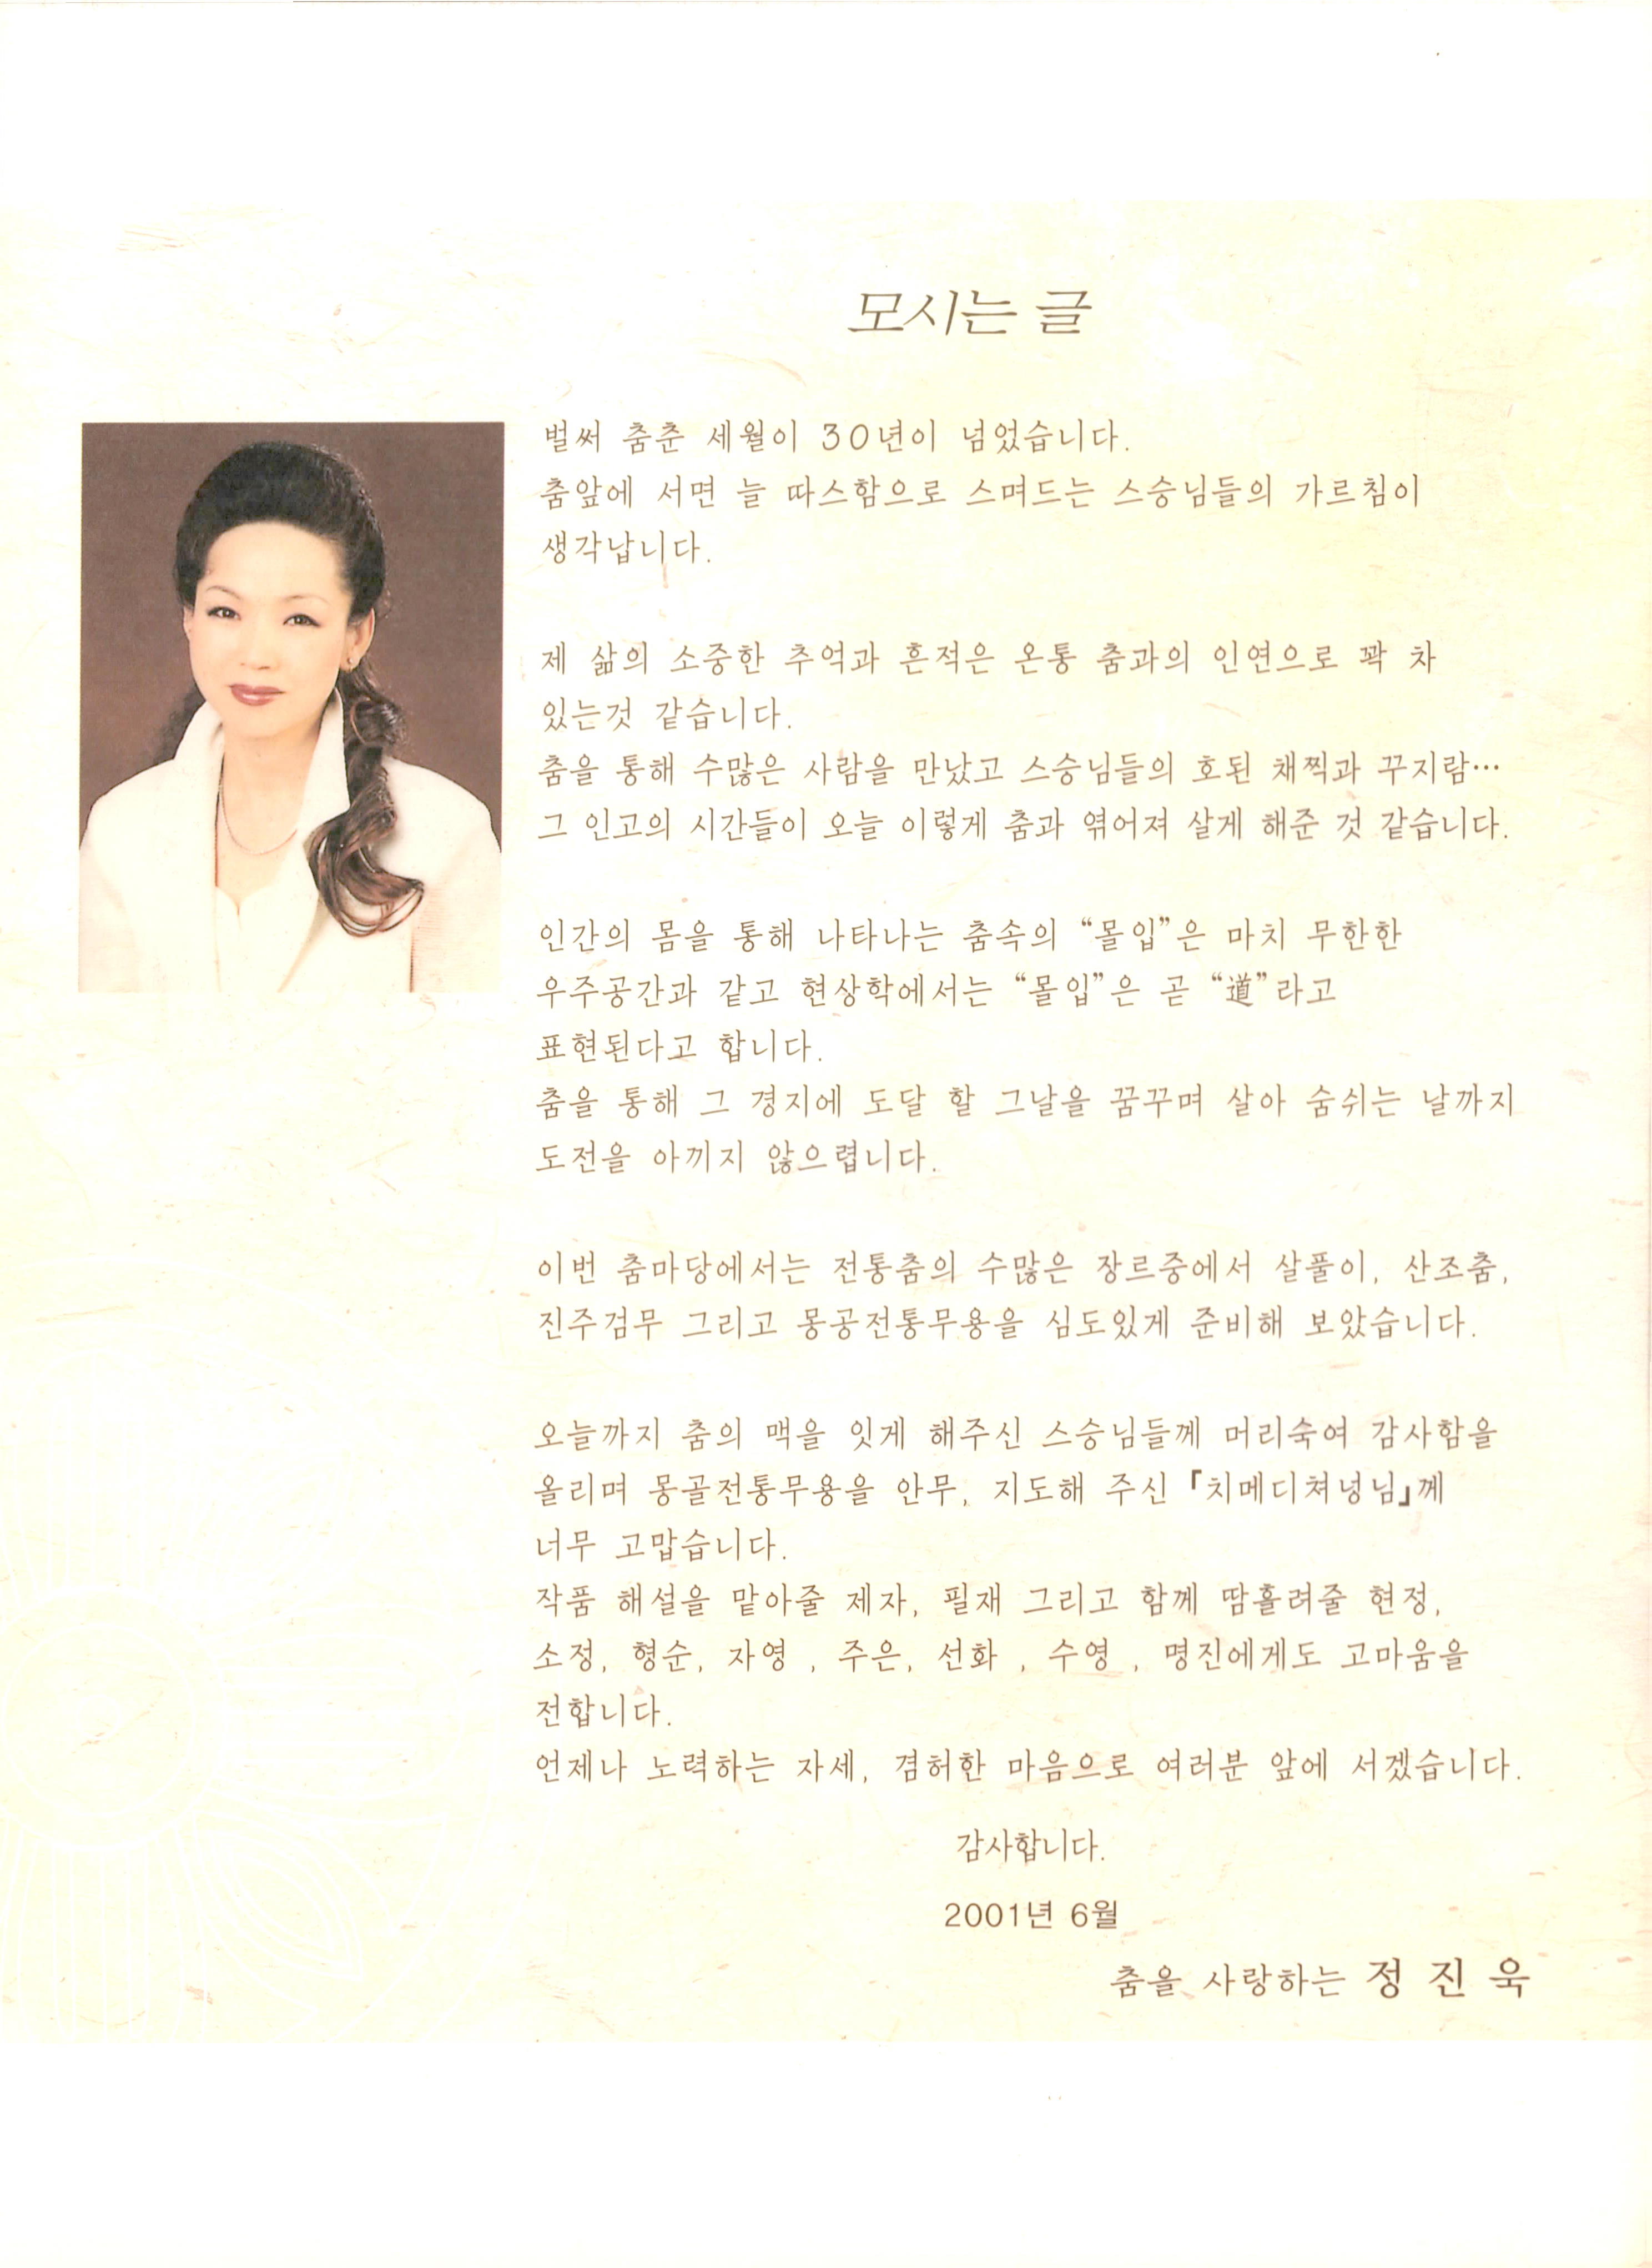 모시는 글
벌써 춤춘 세월이 30년이 넘었습니다.
춤앞에 서면 늘 따스함으로 스며드는 스승님들의 가르침이
생각납니다.
제 삶의 소중한 추억과 흔적은 온통 춤과의 인연으로 꽉 차
있는것 같습니다.
춤을 통해 수많은 사람을 만났고 스승님들의 호된 채찍과 꾸지람…
그 인고의 시간들이 오늘 이렇게 춤과 엮어져 살게 해준 것 같습니다.
인간의 몸을 통해 나타나는 춤속의 “몰입”은 마치 무한한
우주공간과 같고 현상학에서는 “몰입”은 곧 “道”라고
표현된다고 합니다.
춤을 통해 그 경지에 도달 할 그날을 꿈꾸며 살아 숨쉬는 날까지
도전을 아끼지 않으렵니다.
이번 춤마당에서는 전통춤의 수많은 장르중에서 살풀이, 산조춤,
진주검무 그리고 몽공전통무용을 심도있게 준비해 보았습니다.
오늘까지 춤의 맥을 잇게 해주신 스승님들께 머리숙여 감사함을
올리며 몽골전통무용을 안무, 지도해 주신 「치메디쳐넝님」께
너무 고맙습니다.
작품 해설을 맡아줄 제자, 필재 그리고 함께 땀흘려줄 현정,
소정, 형순, 자영 , 주은, 선화 , 수영 , 명진에게도 고마움을
전합니다.
언제나 노력하는 자세, 겸허한 마음으로 여러분 앞에 서겠습니다.
감사합니다.
2001년 6월
춤을 사랑하는 정 진 욱